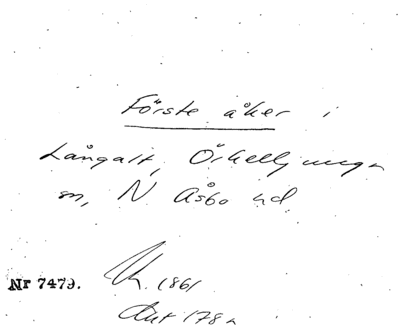 Förste åker i
Långalt, Örkelljunga
sn, N Åsbo hd.
Nr 7479.
1861